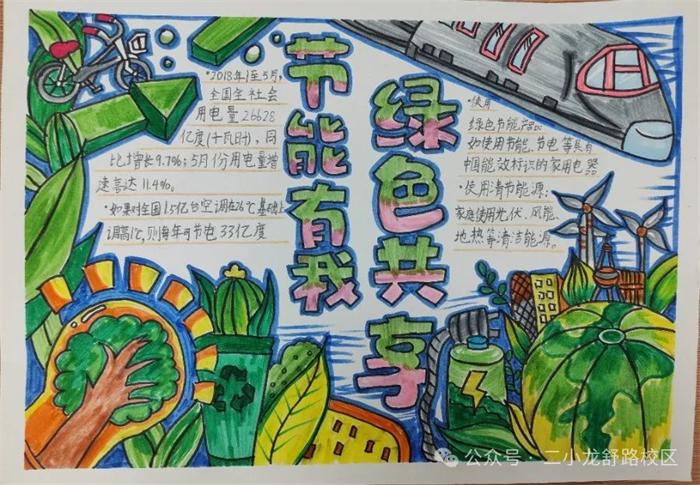 节能有我
绿色共享
·2018年1至5月,
全国全社会
用电量26628
亿度(千瓦时),同
比增长9.7%;5月份用电量增
速高达11.4%。
·如果对全国1.5亿台空调在26℃基础上
调高1℃,则每年可节电33亿度
·使用
绿色节能产品:
如使用节能、节电等具有
中国能效标识的家用电器
·使用清节能源:
家庭使用光伏、风能、
地热等清洁能源。
公众号·二小龙舒路校区